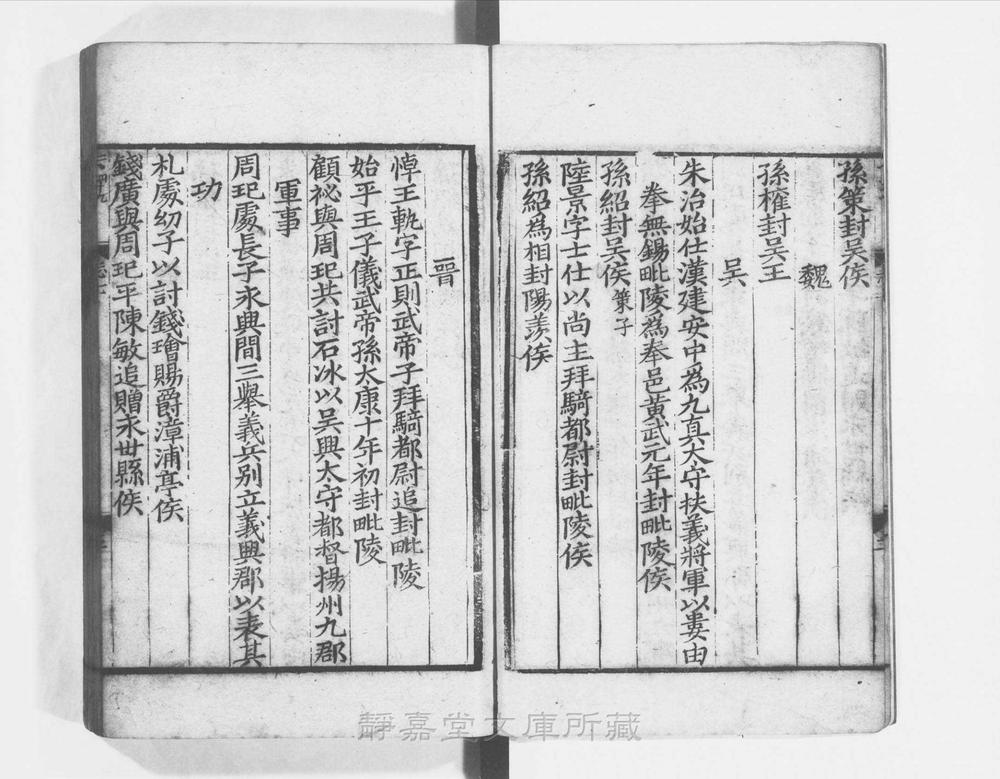 孫策封吴侯
魏
孫權封吴王
吴
朱治始仕漢建安中為九真太守扶義將軍以婁由
拳無錫毗陵為奉邑黄武元年封毗陵侯
孫紹封吴侯策子
陸景字士仕以尚主拜騎都尉封毗陵侯
孫紹爲相封陽羨侯
晉
悼王軌字正則武帝子拜騎都尉追封毗陵
始平王子儀武帝孫太康十年初封毗陵
顧祕與周玘共討石冰以吴興太守都督揚州九郡
軍事
周玘處長子永興間三舉義兵别立義興郡以表其
功
札處幼子以討錢璯賜爵漳浦亭侯
錢廣與周玘平陳敏追贈永丗縣侯
靜嘉堂文庫所藏